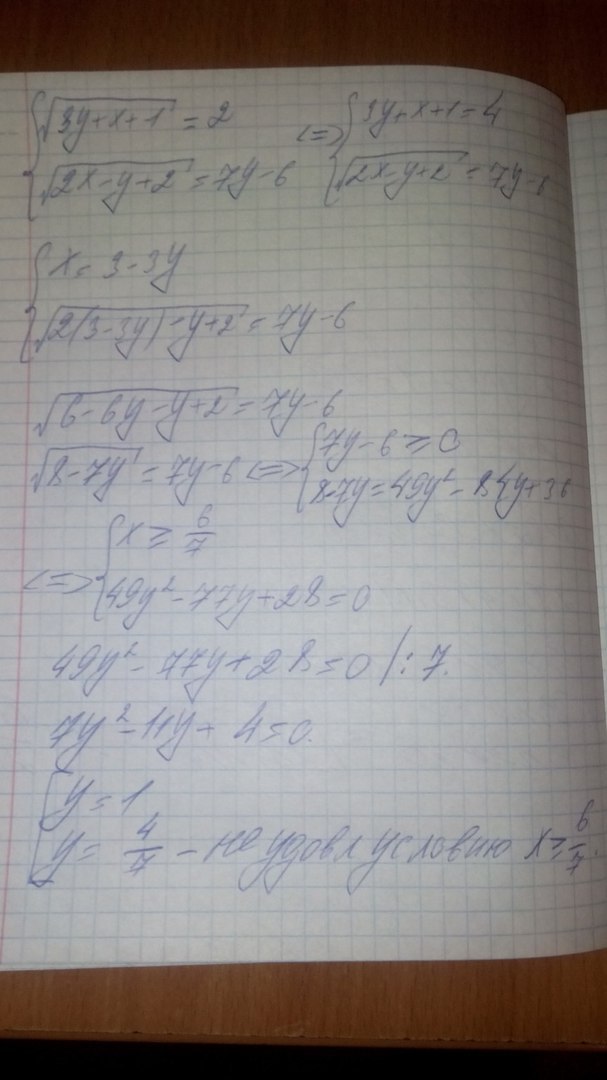 {√(3y+x+1) = 2 <=> {3y+x+1=4
{√(2x-y+2) = 7y-6 {√(2x-y+2) = 7y-6
{x = 3-3y
{√(2(3-3y)-y+2) = 7y-6
√(6-6y-y+2) = 7y-6
√(8-7y) = 7y-6 <=> {7y-6 ≥ 0
{8-7y=49y²-84y+36
<=> {x ≥ 6/7
{49y²-77y+28=0
49y²-77y+28=0 /:7.
7y²-11y+4=0.
[y=1
[y= 4/7 - не удовл условию x≥6/7.